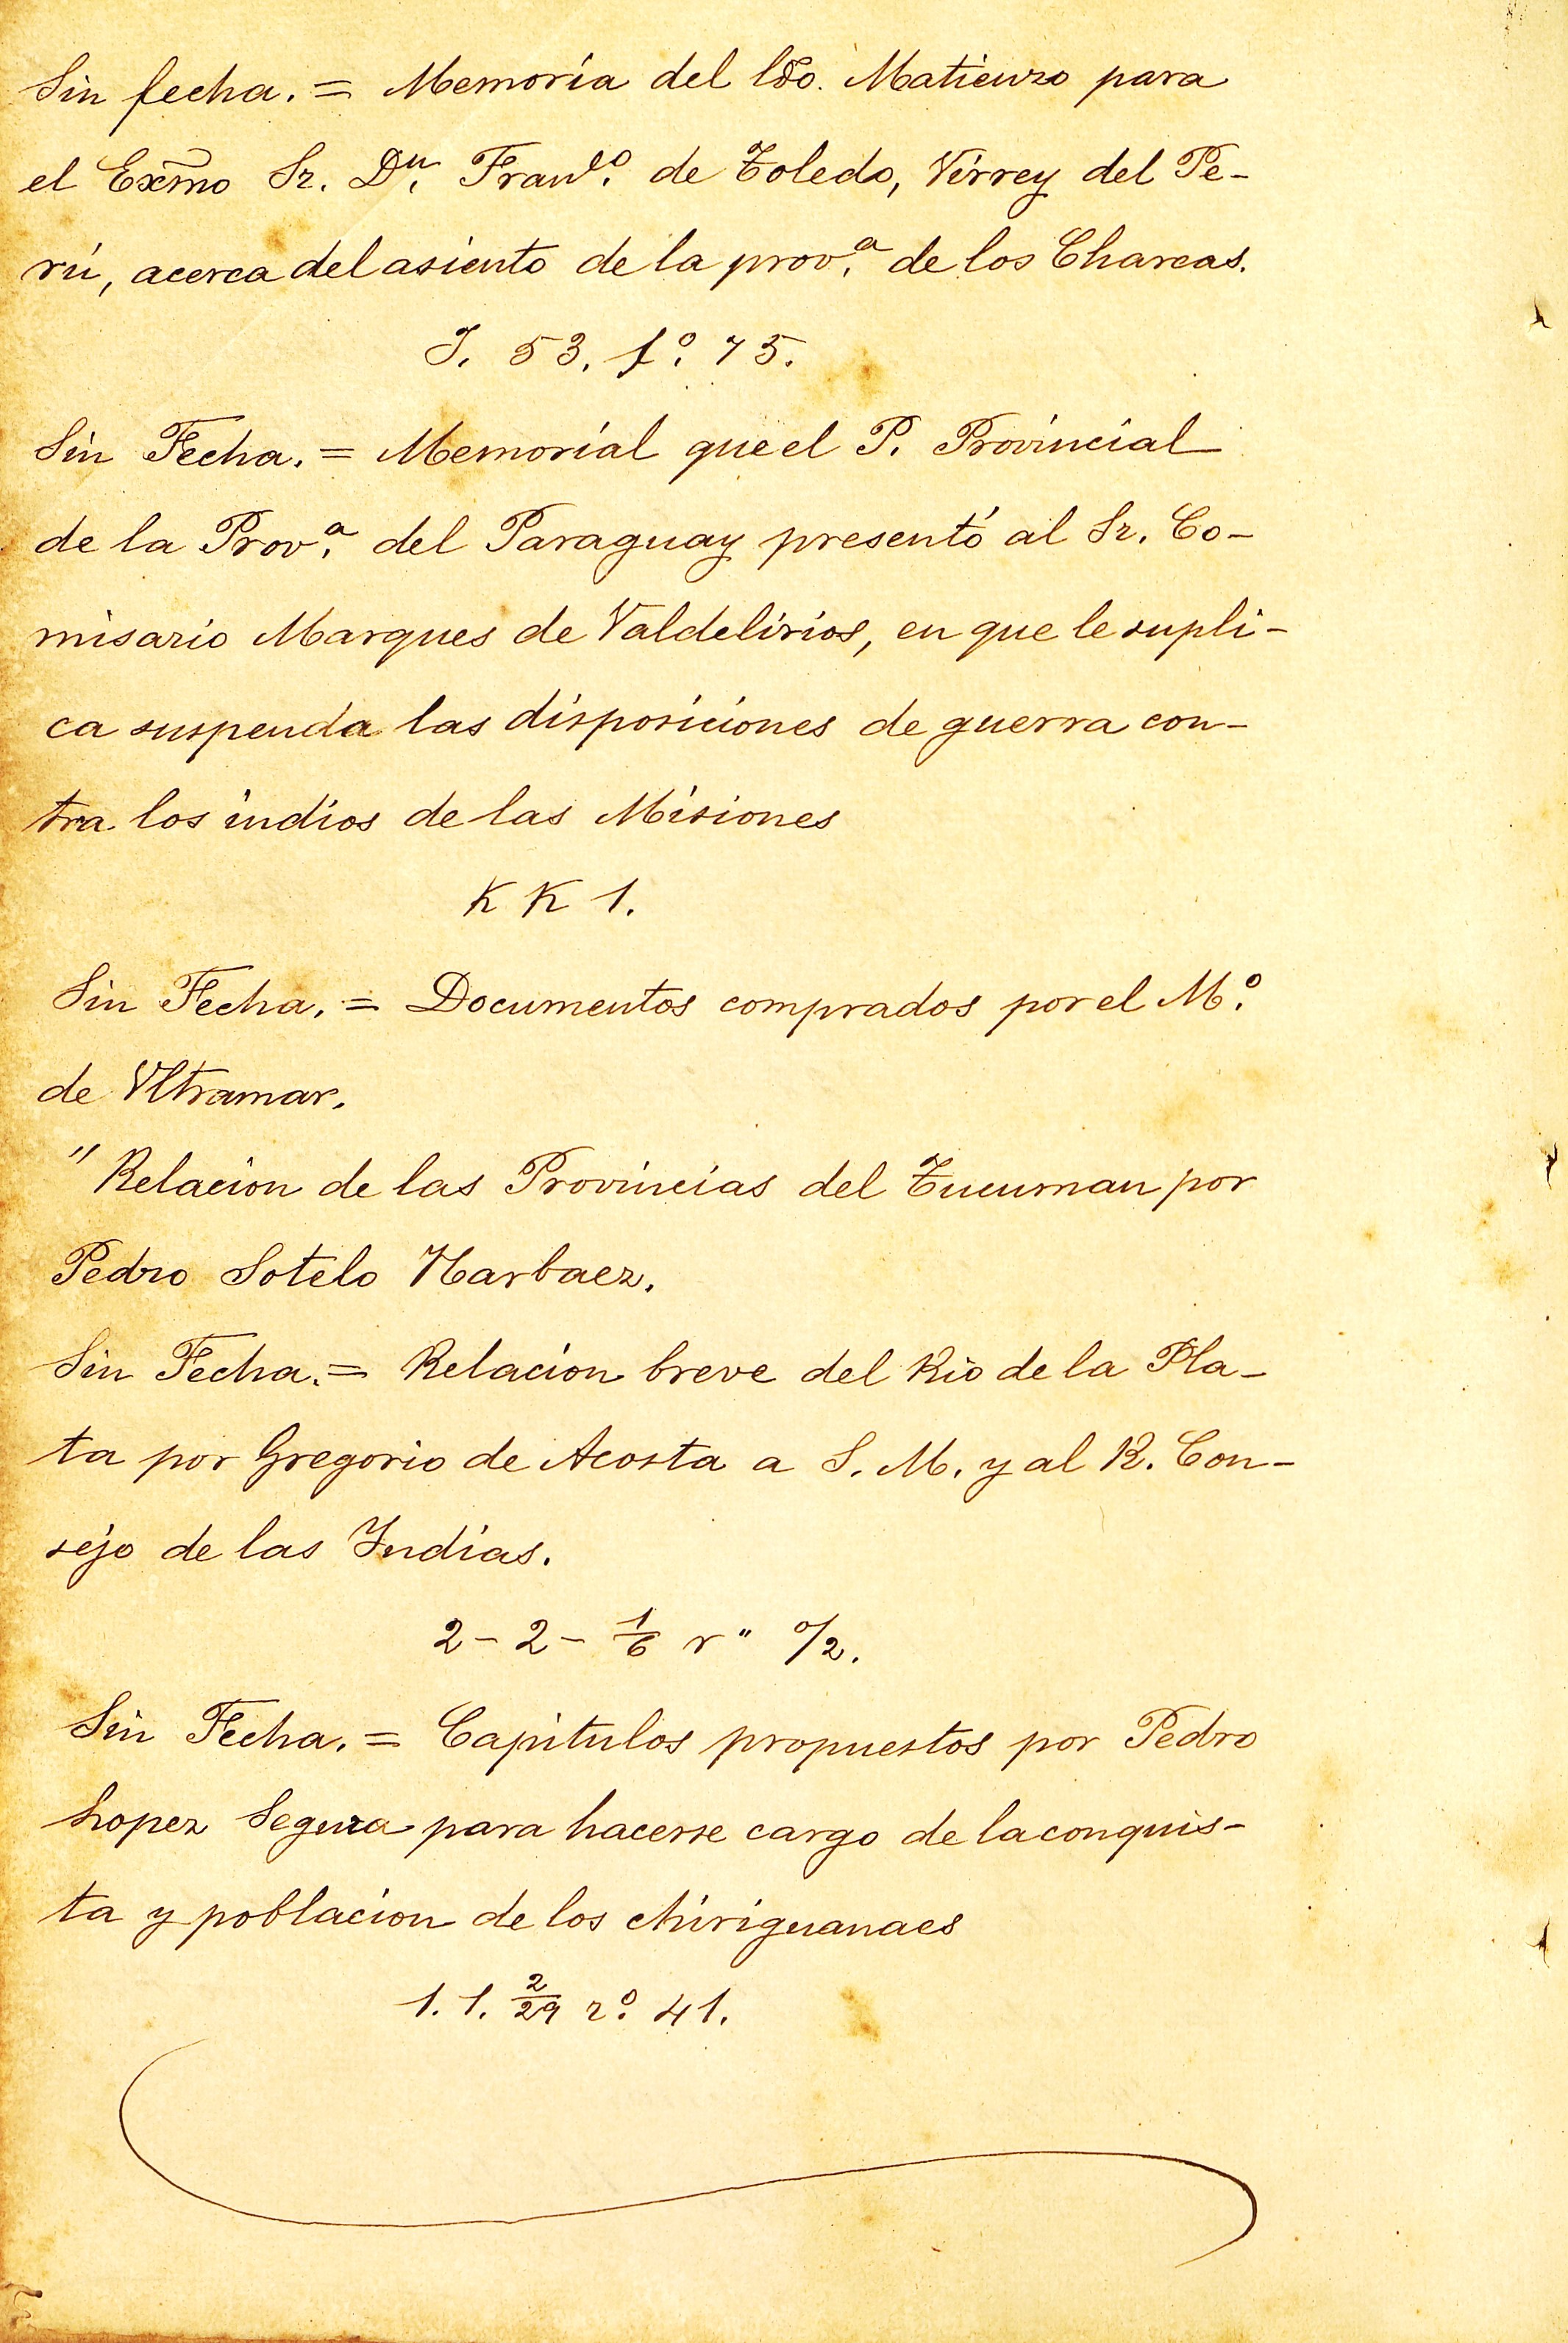 Sin fecha. = Memoria del ldo. Matienzo para
el Exmo Sr. Dn. Franco. de Toledo, Virrey del Pe-
rú, acerca del asiento de la prova. de los Charcas.
J. 53. fo. 75.
Sin Fecha. = Memorial que el P. Provincial
de la Prova. del Paraguay presentó al Sr. Co-
misario Marques de Valdelirios, en que le supli-
ca suspenda las disposiciones de guerra con-
tra los indios de las Misiones
K K 1.
Sin Fecha. = Documentos comprados por el Mo.
de Ultramar.
" Relacion de las Provincias del Tucuman por
Pedro Sotelo Narbaez.
Sin Fecha. = Relacion breve del Rio de la Pla-
ta por Gregorio de Acosta a S. M. y al R. Con-
sejo de las Indias.
2 - 2 - 1/6 r" o/2.
Sin Fecha. = Capitulos propuestos por Pedro
Lopez Segura para hacerse cargo de la conquis-
ta y poblacion de los chiriguanaes
1. 1. 2/29 ro. 41.